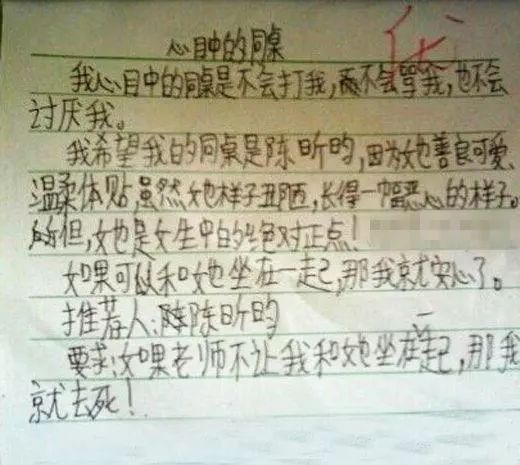 心目中的同桌
优
我心目中的同桌是不会打我,不会骂我,也不会
讨厌我。
我希望我的同桌是陈昕昀,因为她善良可爱、
温柔体贴,虽然她样子丑陋,长得一幅恶心的样子。
但,她是女生中的绝对正点!
如果可以和她坐在一起,那我就安心了。
推荐人:陈昕昀
要求:如果老师不让我和她坐在一起,那我
就去死!